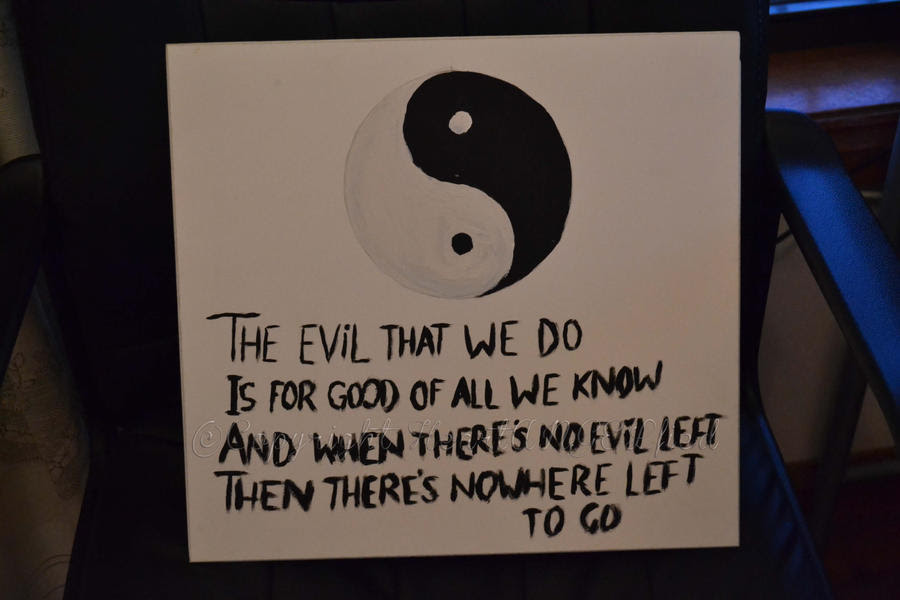 THE EViL THAT WE DO
IS FOR GOOD OF ALL WE KNOW
AND WHEN THERE'S NO EViL LEFT
THEN THERE'S NOWHERE LEFT
TO GO
© Copyright